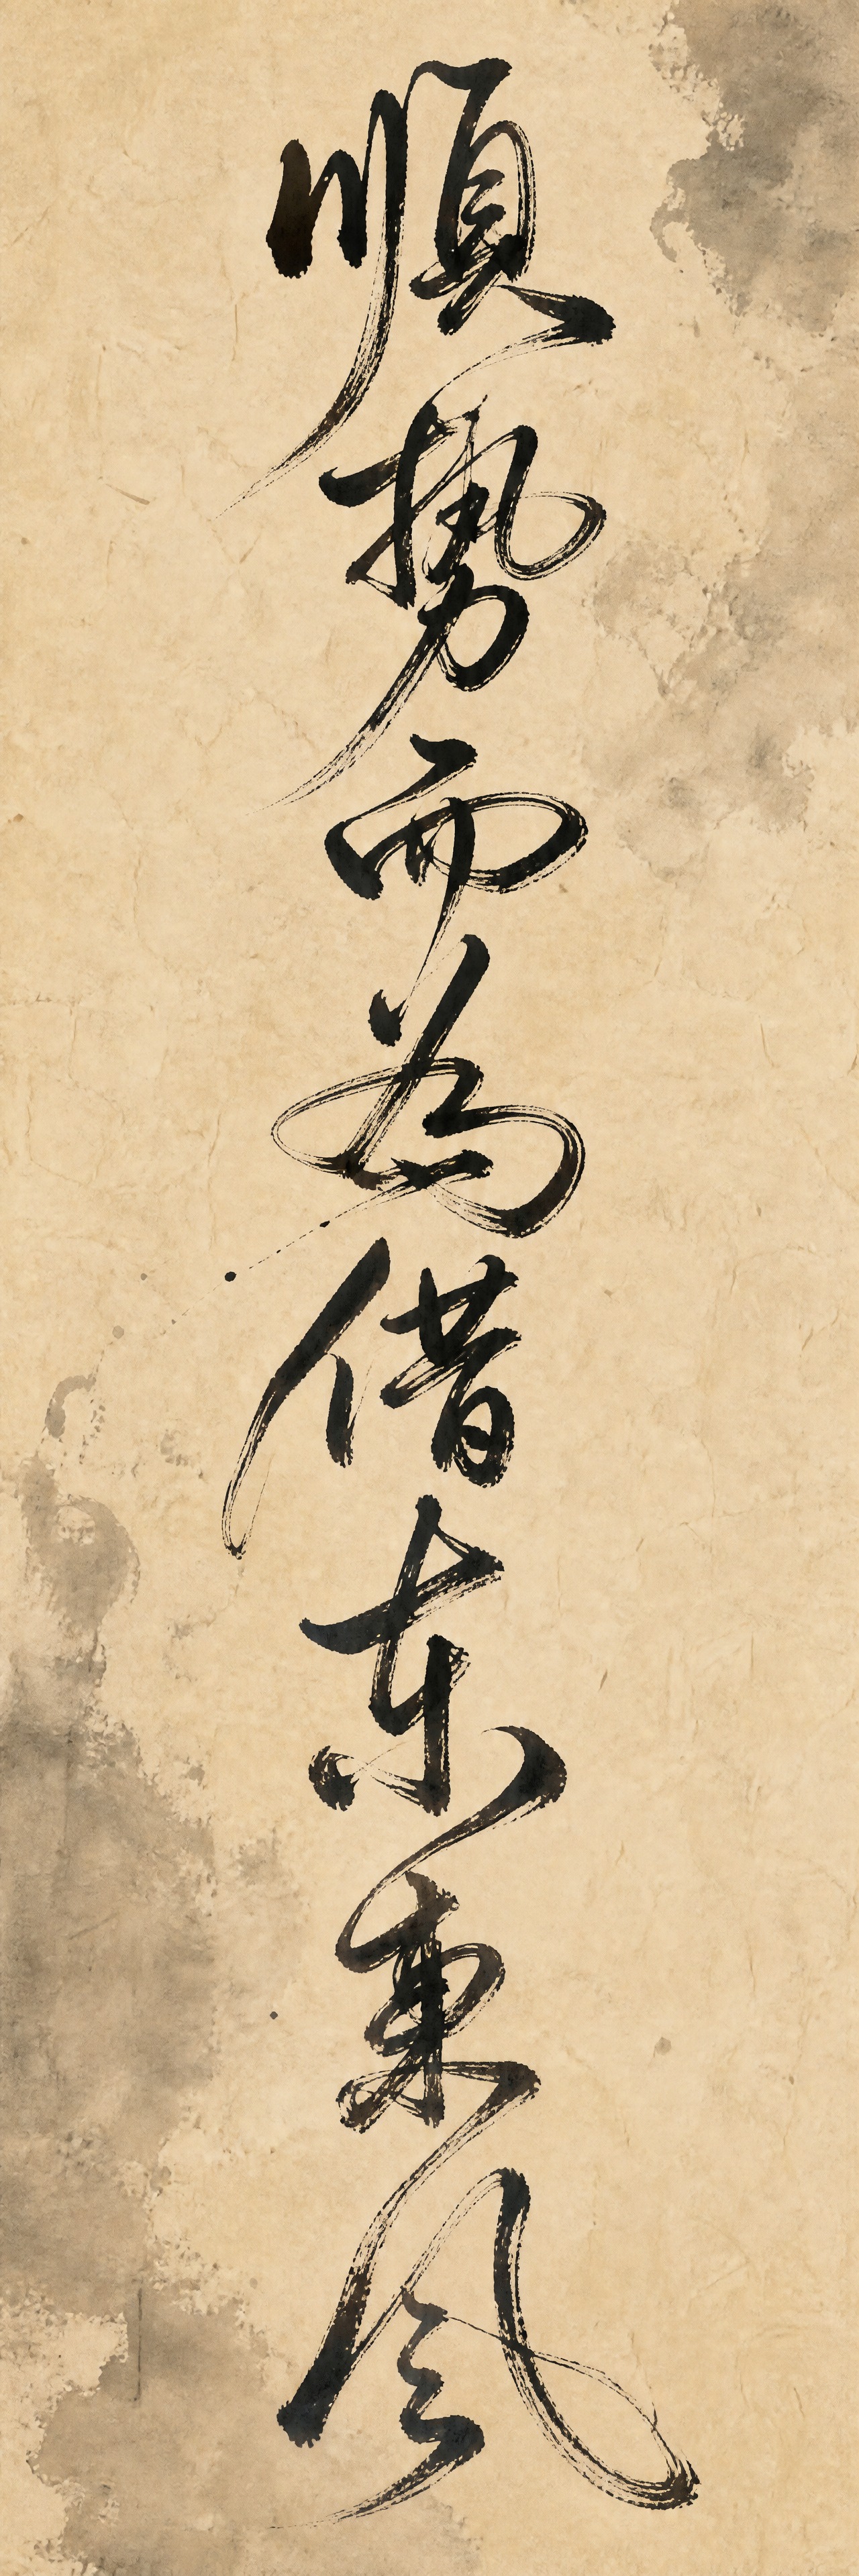 順勢而為借东東風